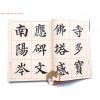 寺多寶
佛塔感
應碑文
南陽岑